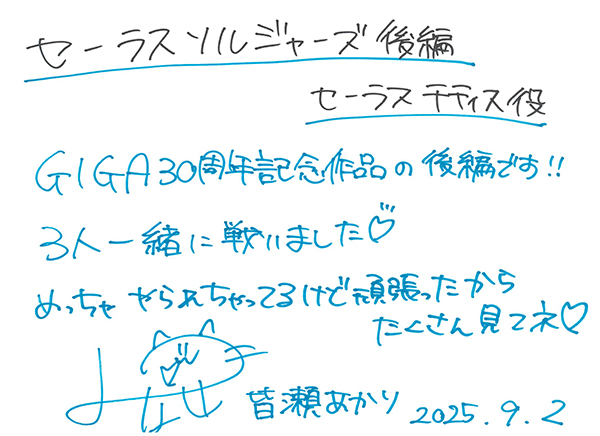 セーラスソルジャーズ後編
セーラステティス役
GIGA30周年記念作品の後編です!!
3人一緒に戦いました♡
めっちゃやられちゃってるけど頑張ったから
たくさん見てネ♡
皆瀬あかり 2025.9.2